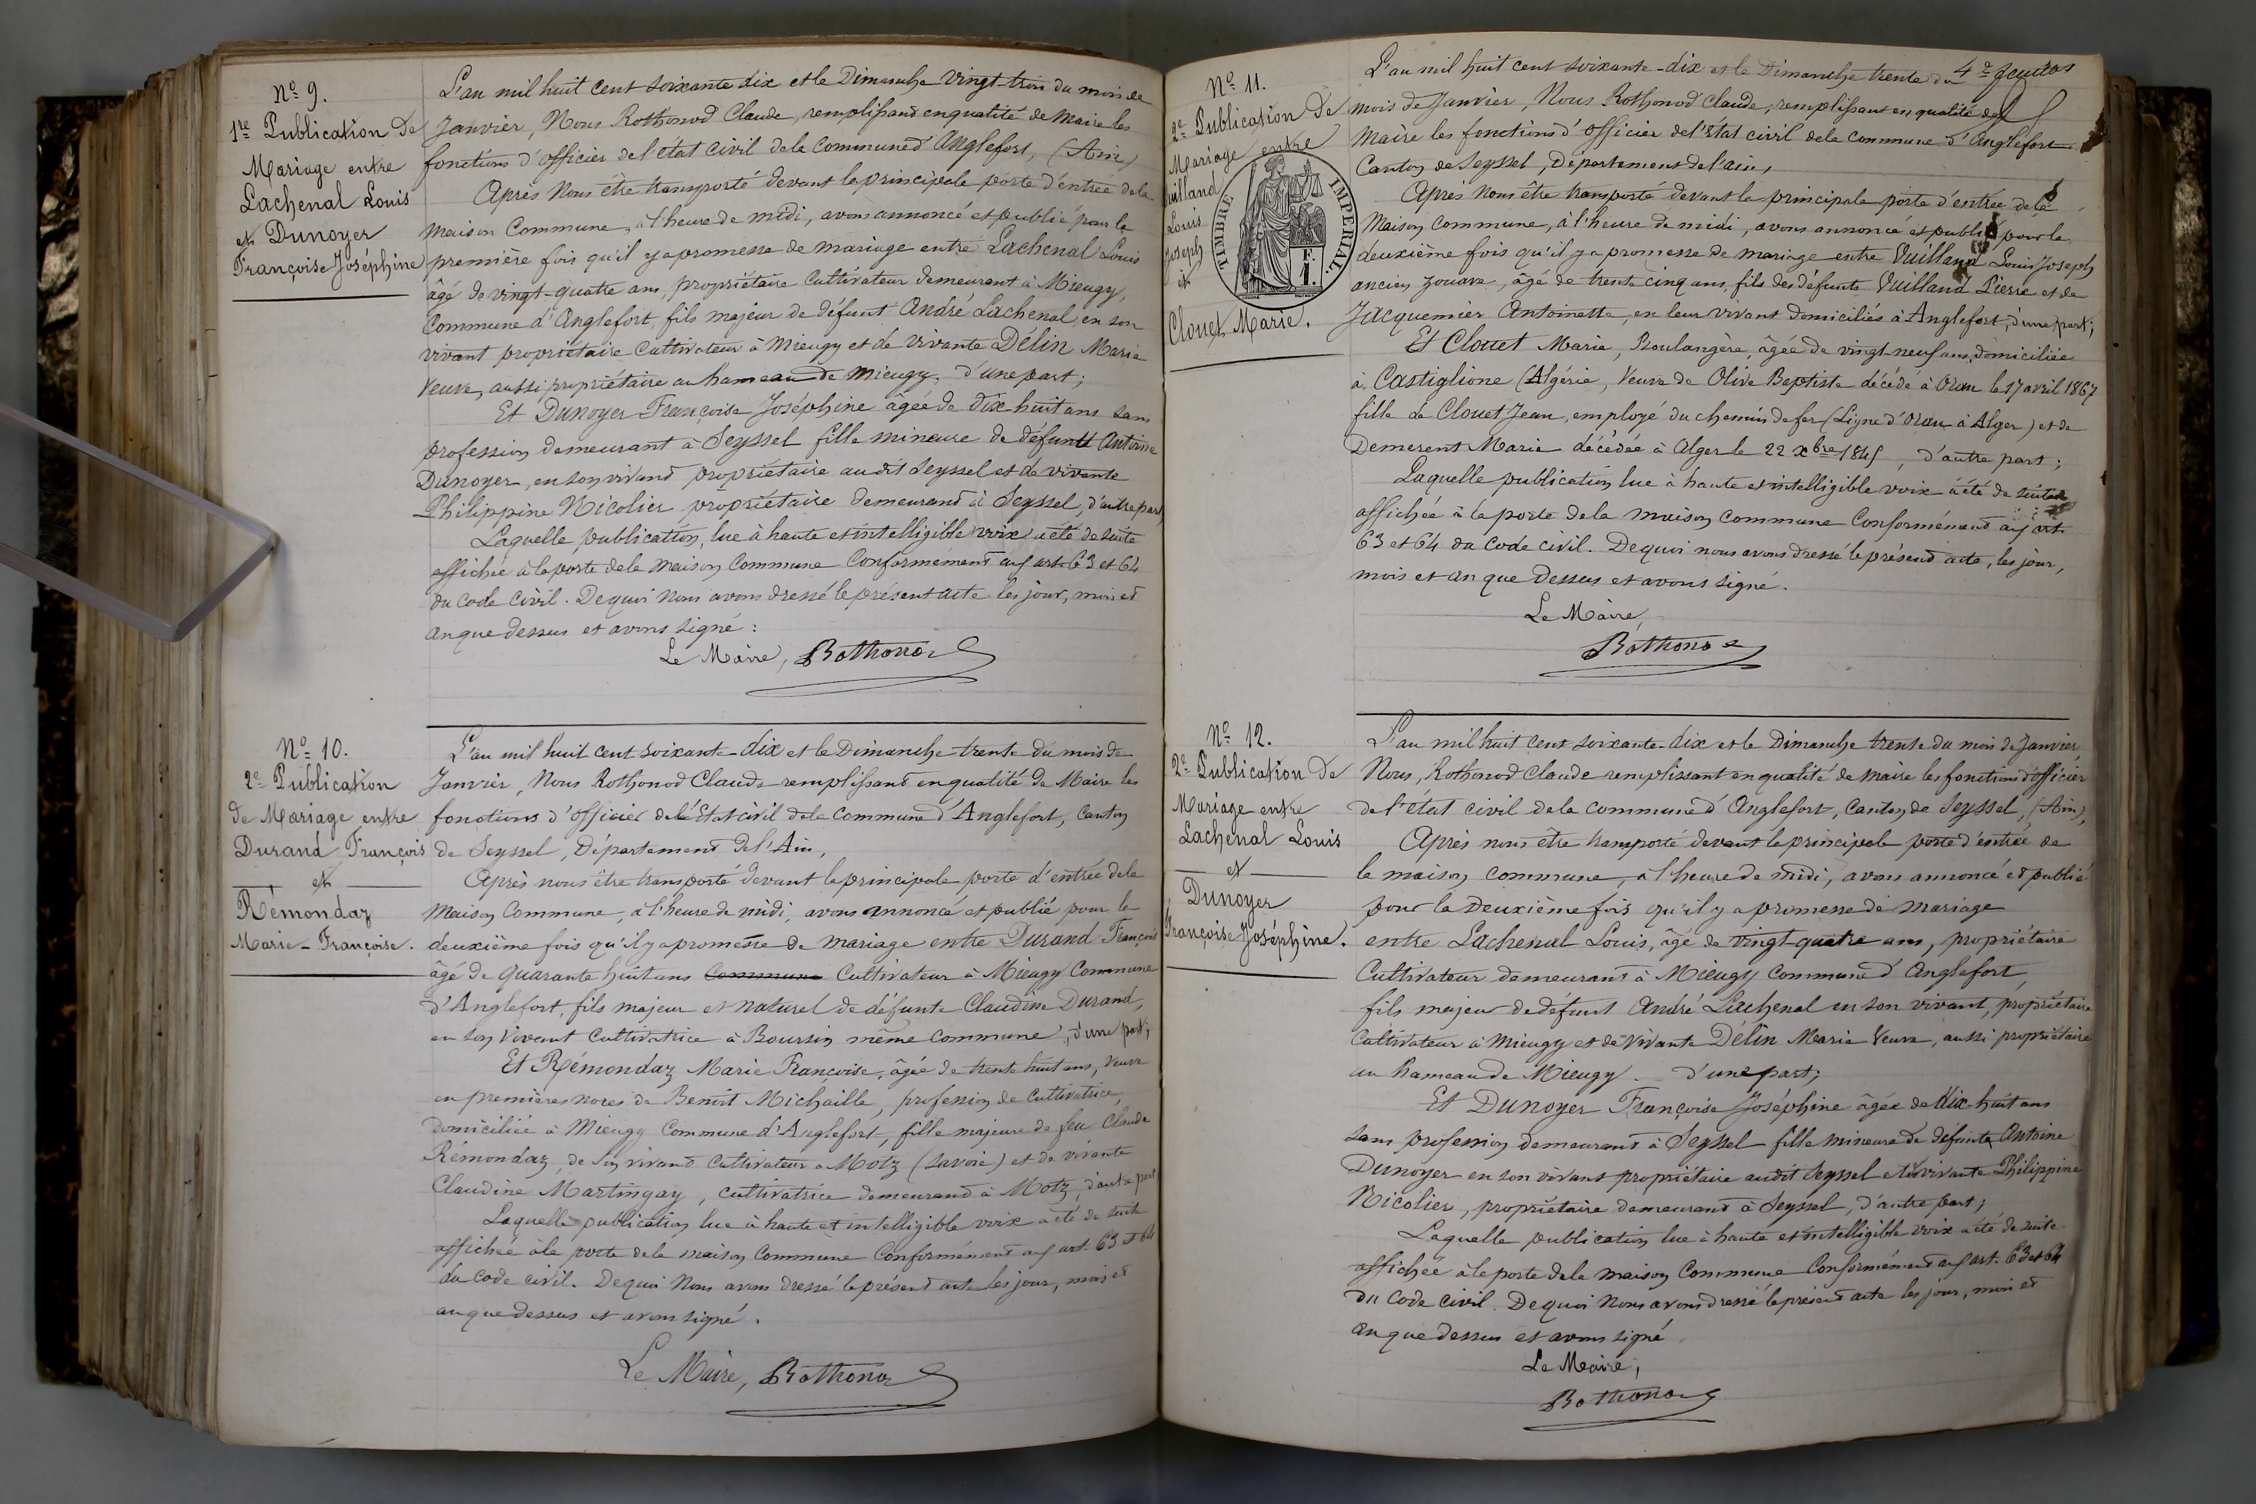 Nº 9.
1re Publication de
Mariage entre
Lachenal Louis
et Dunoyer
Françoise Joséphine
L'an mil huit cent soixante dix et le Dimanche vingt-trois du mois de
Janvier, Nous Rothonod Claude, remplissant en qualité de Maire les
fonctions d'officier de l'état civil de la commune d'Anglefort, (Ain)
Après nous être transporté devant la principale porte d'entrée de la
maison commune, à l'heure de midi, avons annoncé et publié pour la
première fois qu'il y a promesse de mariage entre Lachenal Louis
âgé de vingt-quatre ans, propriétaire cultivateur demeurant à Mieugy,
Commune d'Anglefort, fils majeur de défunt André Lachenal, en son
vivant propriétaire cultivateur à Mieugy et de vivante Délin Marie
veuve, aussi propriétaire au hameau de Mieugy, d'une part;
Et Dunoyer Françoise Joséphine âgée de dix huit ans sans
profession demeurant à Seyssel fille mineure de défunt Antoine
Dunoyer, en son vivant propriétaire au dit Seyssel et de vivante
Philippine Nicolier, propriétaire demeurant à Seyssel, d'autre part,
Laquelle publication, lue à haute et intelligible voix a été de suite
affichée à la porte de la maison commune conformément aux art. 63 et 64
du code civil. De quoi nous avons dressé le présent acte les jour, mois et
an que dessus et avons signé :
Le Maire, Rothonod
Nº 10.
2e Publication
de Mariage entre
Durand François
et
Rémondaz
Marie-Françoise.
L'an mil huit cent soixante-dix et le Dimanche trente du mois de
Janvier, Nous Rothonod Claude remplissant en qualité de Maire les
fonctions d'officier de l'état civil de la commune d'Anglefort, canton
de Seyssel, département de l'Ain,
Après nous être transporté devant la principale porte d'entrée de la
maison commune, à l'heure de midi, avons annoncé et publié pour la
deuxième fois qu'il y a promesse de mariage entre Durand François
âgé de quarante huit ans commune cultivateur à Mieugy commune
d'Anglefort, fils majeur et naturel de défunte Claudine Durand,
en son vivant cultivatrice à Boursin même commune, d'une part;
Et Rémondaz Marie Françoise, âgée de trente huit ans, veuve
en premières noces de Benoît Michaille, profession de cultivatrice,
domiciliée à Mieugy commune d'Anglefort, fille majeure de feu Claude
Rémondaz, de son vivant cultivateur à Motz (Savoie) et de vivante
Claudine Martingay, cultivatrice demeurant à Motz, d'autre part
Laquelle publication lue à haute et intelligible voix a été de suite
affichée à la porte de la maison commune conformément aux art. 63 et 64
du code civil. De quoi nous avons dressé le présent acte les jour, mois et
an que dessus et avons signé.
Le Maire, Rothonod
Nº 11.
2e Publication de
Mariage entre
Vuilland
Louis
Joseph
et
Clouet Marie.
TIMBRE IMPERIAL.
1 F.
L'an mil huit cent soixante-dix et le Dimanche trente du
mois de Janvier, Nous Rothonod Claude, remplissant en qualité de
Maire les fonctions d'officier de l'état civil de la commune d'Anglefort
Canton de Seyssel, Département de l'ain,
Après nous être transporté devant la principale porte d'entrée de la
Maison commune, à l'heure de midi, avons annoncé et publié pour la
deuxième fois qu'il y a promesse de mariage entre Vuilland Louis Joseph
ancien zouave, âgé de trente cinq ans, fils des défunts Vuilland Pierre et de
Jacquemier Antoinette, en leur vivant domiciliés à Anglefort, d'une part;
Et Clouet Marie, Boulangère, âgée de vingt-neuf ans, domiciliée
à Castiglione (Algérie, veuve de Olive Baptiste décédé à Oran le 17 avril 1867
fille de Clouet Jean, employé du chemin de fer (Ligne d'Oran à Alger) et de
Demerent Marie décédée à Alger le 22 Xbre 1845, d'autre part;
Laquelle publication lue à haute et intelligible voix a été de suite
affichée à la porte de la maison commune conformément aux art.
63 et 64 du code civil. De quoi nous avons dressé le présent acte, les jour,
mois et an que dessus et avons signé.
Le Maire,
Rothonod
Nº 12.
2e Publication de
Mariage entre
Lachenal Louis
et
Dunoyer
Françoise Joséphine.
L'an mil huit cent soixante-dix et le Dimanche trente du mois de Janvier
Nous, Rothonod Claude remplissant en qualité de maire les fonctions d'officier
de l'état civil de la commune d'Anglefort, canton de Seyssel, (Ain),
Après nous être transporté devant la principale porte d'entrée de
la maison commune, à l'heure de midi, avons annoncé et publié
pour la deuxième fois qu'il y a promesse de mariage
entre Lachenal Louis, âgé de vingt-quatre ans, propriétaire
cultivateur demeurant à Mieugy commune d'Anglefort,
fils majeur de défunt André Lachenal en son vivant, propriétaire
cultivateur à Mieugy et de vivante Délin Marie veuve, aussi propriétaire
au hameau de Mieugy. d'une part;
Et Dunoyer Françoise Joséphine âgée de dix-huit ans
sans profession demeurant à Seyssel fille mineure de défunt Antoine
Dunoyer en son vivant propriétaire audit Seyssel et de vivante Philippine
Nicolier, propriétaire demeurant à Seyssel, d'autre part;
Laquelle publication lue à haute et intelligible voix a été de suite
affichée à la porte de la maison commune conformément aux art. 63 et 64
du code civil. De quoi nous avons dressé le présent acte les jour, mois et
an que dessus et avons signé
Le Maire,
Rothonod